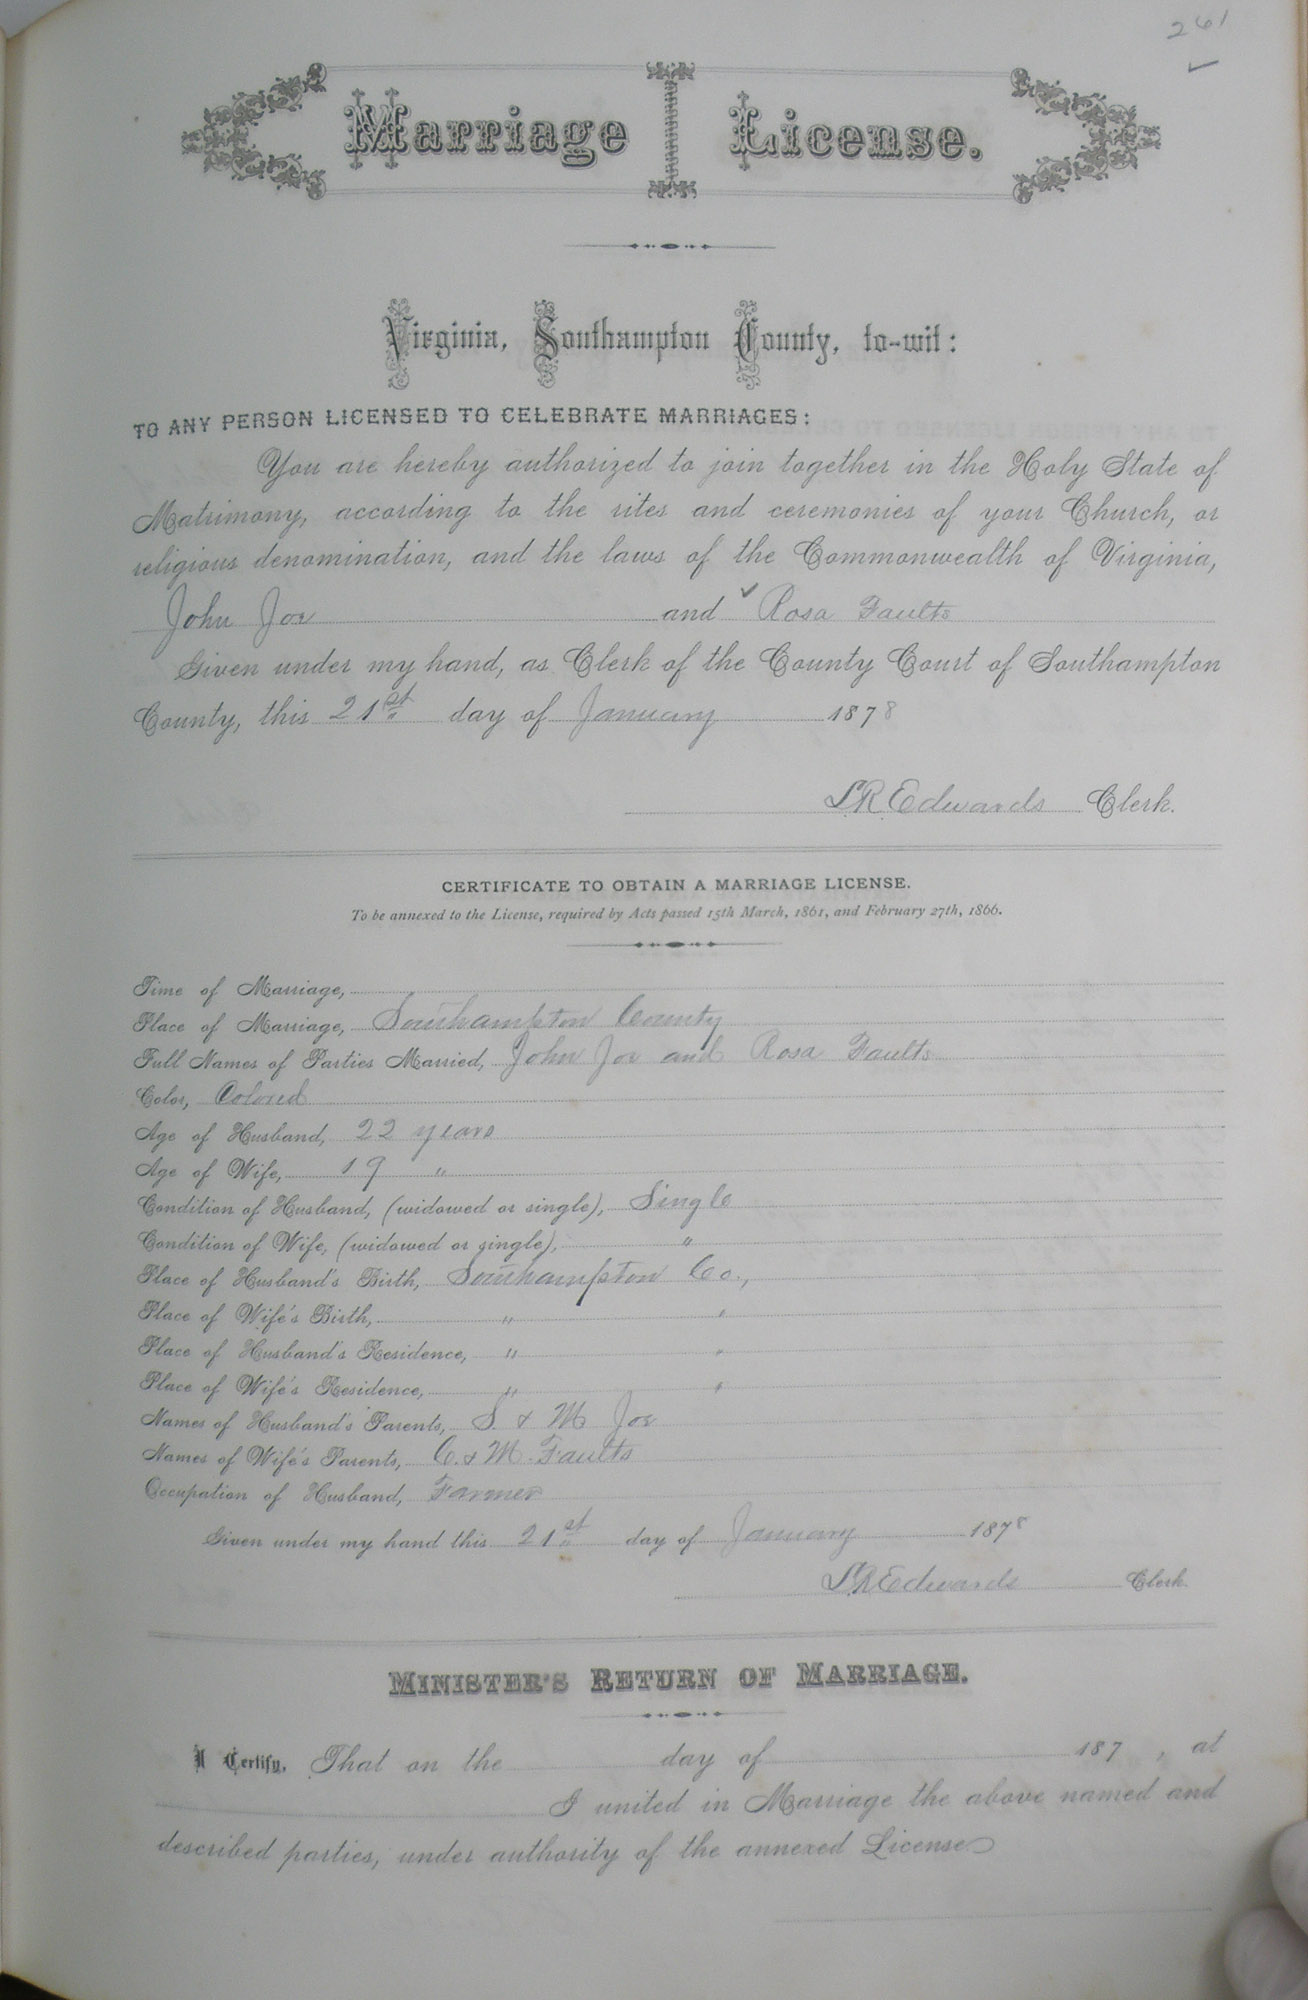 261
Marriage License.
Virginia, Southampton County, to-wit:
TO ANY PERSON LICENSED TO CELEBRATE MARRIAGES:
You are hereby authorized to join together in the Holy State of
Matrimony, according to the rites and ceremonies of your Church, or
religious denomination, and the laws of the Commonwealth of Virginia,
John Joe and ✓ Rosa Faults
Given under my hand, as Clerk of the County Court of Southampton
County, this 21st day of January 1878
L.R. Edwards Clerk.
CERTIFICATE TO OBTAIN A MARRIAGE LICENSE.
To be annexed to the License, required by Acts passed 15th March, 1861, and February 27th, 1866.
Time of Marriage,
Place of Marriage, Southampton County
Full Names of Parties Married, John Joe and Rosa Faults
Color, Colored
Age of Husband, 22 years
Age of Wife, 19 "
Condition of Husband, (widowed or single), Single
Condition of Wife, (widowed or single), "
Place of Husband's Birth, Southampton Co.,
Place of Wife's Birth, " "
Place of Husband's Residence, " "
Place of Wife's Residence, " "
Names of Husband's Parents, S. & M Joe
Names of Wife's Parents, C. & M. Faults
Occupation of Husband, Farmer
Given under my hand this 21st day of January 1878
L.R. Edwards Clerk.
MINISTER'S RETURN OF MARRIAGE.
I Certify, That on the day of 187 , at
I united in Marriage the above named and
described parties, under authority of the annexed License